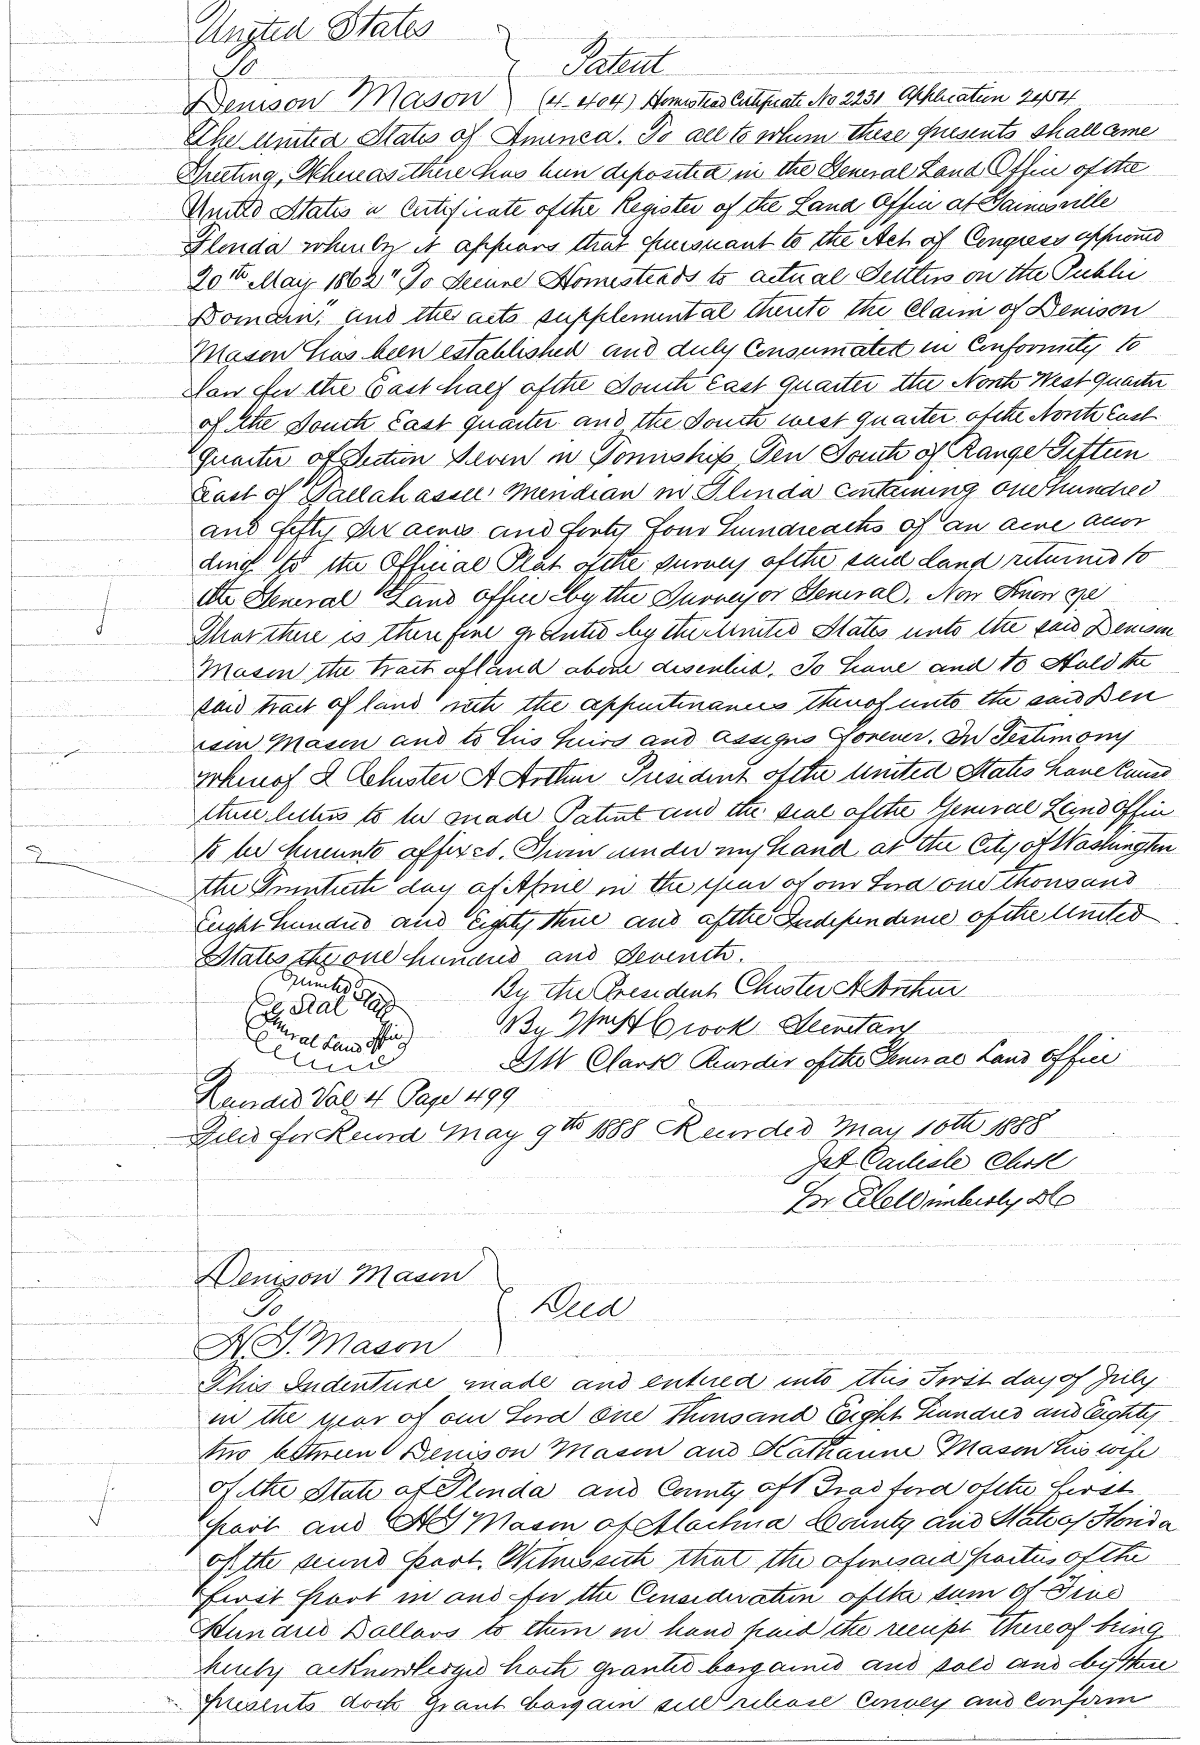 United States
To
Patent
Denison Mason (4-404) Homestead Certificate No 2231 Application 2454
The United States of America. To all to whom these presents shall come
Greeting, Whereas there has been deposited in the General Land Office of the
United States a Certificate of the Register of the Land Office at Gainesville
Florida whereby it appears that pursuant to the Act of Congress approved
20th May 1862 "To Secure Homesteads to actual Settlers on the Public
Domain," and the acts supplemental thereto the Claim of Denison
Mason has been established and duly Consumated in Conformity to
law for the East half of the South East quarter the North West quarter
of the South East quarter and the South west quarter of the North East
quarter of Section Seven in Township Ten South of Range Fifteen
East of Tallahassee Meridian in Florida Containing one hundred
and fifty Six acres and forty four hundreadths of an acre accor
ding to the Official Plat of the survey of the said land returned to
the General Land office by the Surveyor General. Now Know ye
That there is therefore granted by the United States unto the said Denison
Mason the tract of land above described. To have and to Hold the
said tract of land with the appurtinances thereof unto the said Den
ison Mason and to his heirs and assigns forever. In Testimony
whereof I Chester A Arthur President of the United States have Caused
these letters to be made Patent and the seal of the General Land Office
to be hereunto affixed. Given under my hand at the City of Washington
the Twentieth day of April in the year of our Lord one thousand
Eight hundred and Eighty three and of the Independence of the United
States the one hundred and Seventh.
United
Seal States
General Land Office
By the President Chester A Arthur
By Wm H Crook Secretary
Clark Recorder of the General Land office
Recorded Vol 4 Page 499
Filed for Record May 9th 1888 Recorded May 10th 1888
Carlisle Clerk
Wimberly DC
2
Denison Mason
To
Deed
H. G. Mason
This Indenture made and entered into this First day of July
in the year of our Lord One Thousand Eight hundred and Eighty
two between Denison Mason and Katharine Mason his wife
of the State of Florida and County of Bradford of the first
part and HG Mason of Alachua County and State of Florida
of the second part. Witnesseth that the aforesaid parties of the
first part in and for the Consideration of the sum of Five
Hundred Dollars to them in hand paid the receipt thereof being
hereby acknowledged hath granted bargained and sold and by these
presents doth Grant bargain sell release Convey and Confirm